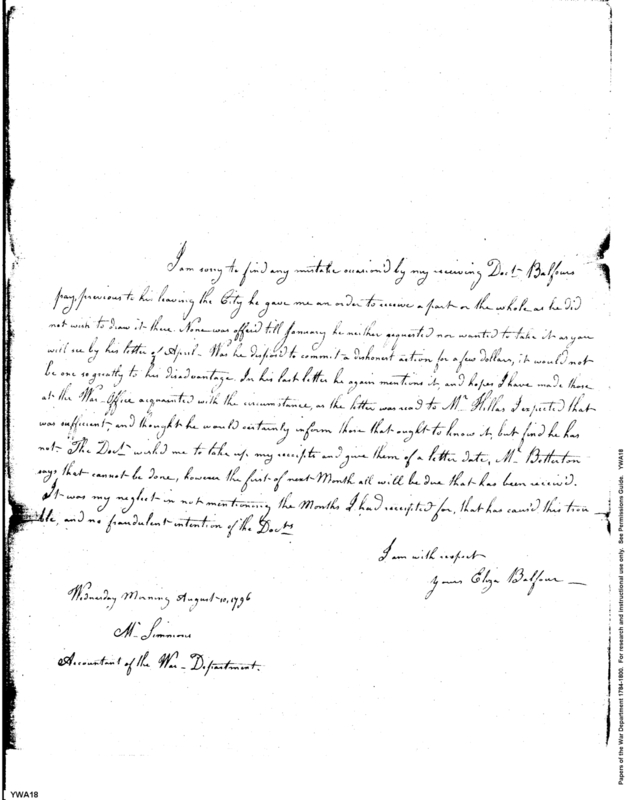 I am sorry to find any mistake occasion'd by my receiving Doctr Balfours
pay, previous to his leaving the City he gave me an order to receive a part or the whole as he did
not wish to draw it there. None was offer'd till January he neither requested nor wanted to take it as you
will see by his letter of April - Was he disposed to commit a dishonest action for a few dollars, it would not
be one so greatly to his disadvantage. In his last letter he again mentions it, and hopes I have made those
at the War-Office acquainted with the circumstance, as the letter was read to Mr I expected that
was sufficient, and thought he would certainly inform those that ought to know it, but find he has
not - The Doctr wish'd me to take up my receipts and give them of a later date, Mr Betterton
says that cannot be done, however the first of next Month all will be due that has been receiv'd.
It was my neglect in not mentioning the Months I had receipted for, that has caus'd this trou
ble, and no fraudulent intention of the Doctrs
I am with respect
yours Eliza Balfour -
Wednesday Morning August 10, 1796
Mr Simmons
Accountant of the War - Department.
YWA18
Papers of the War Department 1784-1800. For research and instructional use only. See Permissions Guide. YWA18